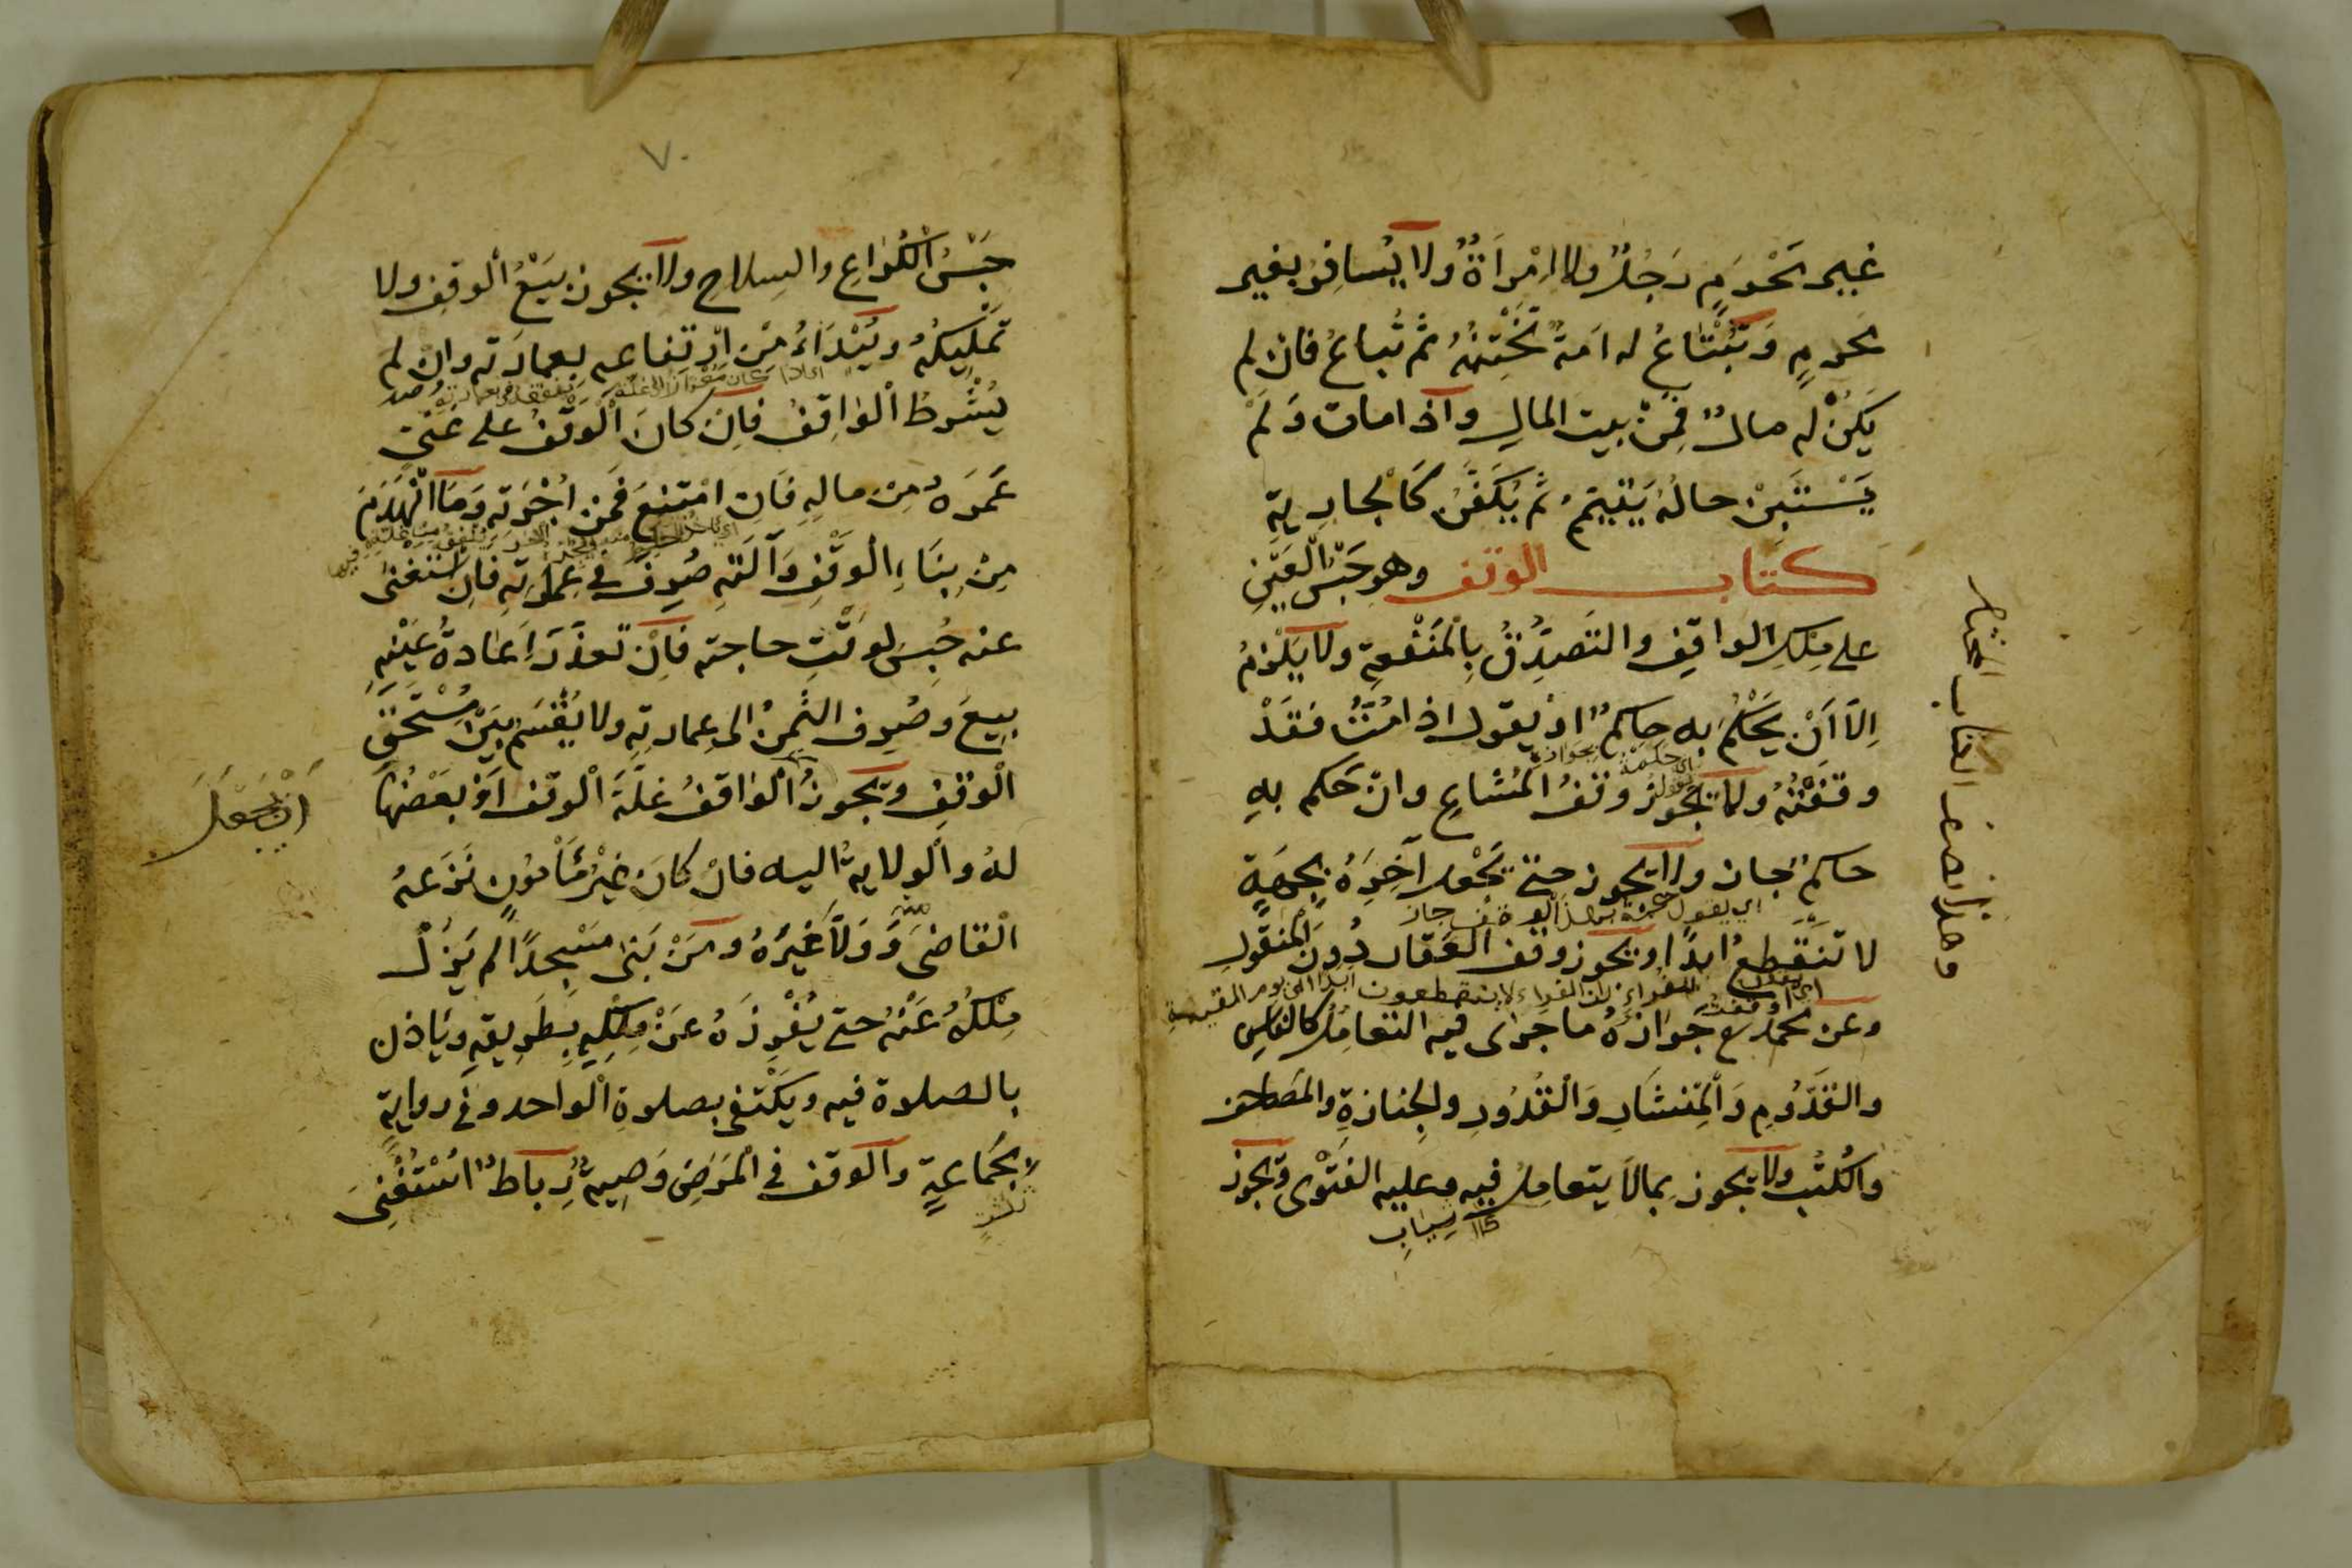 غير محرم رجلٌ ولا امْرأةٌ ولا يُسافِر بغير
محرمٍ وَتُبْتَاعُ له امَةٌ تَخْتِنُهُ ثم تُباعُ فان لم
يَكُنْ له مالٌ فَمِنْ بيت المالِ واذا مات وَلَمْ
يَسْتَبِنْ حالُهُ يُتَيَمَّمُ ثم يُكَفَّنُ كَالْجارية
كتاب الوقف وهو حَبْسُ الْعَيْنِ
على مِلكِ الواقِفِ والتَصَدُّقُ بِالْمَنْفَعةِ ولا يَلْزمُ
اِلّا اَنْ يَحْكُمَ به حاكمٌ اوْ يقول اذا مُتُّ فقَدْ
وقفْتُهُ ولا يَجُوز وقفُ المُشاعِ وان حَكم بهِ
حاكم جاز ولا يجوز حتّى يَجْعل آخِرَهُ بِجِهَةٍ
اي يقول هذا الوقف جاز
لا تَنْقَطِعُ ابدًا ويجوز وقف العَقار دُونَ المنقُولِ
لان الفقراء لا ينقطعون ابدا الى يوم القيمة
وعن محمد جَوازُهُ ما جرى فيه التعامُل كالفاسِ
والقَدُّومِ وَالْمِنْشَارِ وَالْقُدُورِ والجِنازةِ والمصَاحف
والكُتُب ولا يجوز بما لا يتعامل فيه وعليه الفَتْوى وَيجوز
كالثياب
وهذا نصف الكتاب المختار
٧٠
حَبْسُ الْكُرَاعِ والسِلاحِ ولا يجوز بَيْعُ الْوقفِ ولا
تَمْليكُهُ ويُبْدَاءُ مِن ارتفاعه بعمارته وانْ لم
يُشْرطْ الْوَاقِفُ فاِن كانَ الْوَقْفُ على غَنيّ
عَمَرَهُ مِنْ مالهِ فَاِن امْتنعَ فَمن اُجْرَته وَما انْهَدَمَ
مِنْ بِنَاءِ الْوَقْفِ وَآلَتهِ صُرِفَ في عِمارَتهِ فاِن اسْتَغنى
عنه حُبِسَ لوقْتِ حاجته فاِنْ تعذّرَ اِعَادةُ عَيْنهِ
بِيعَ وصُرِف الثَمنُ الى عِمارتهِ ولا يُقْسَمُ بَيْنَ مُسْتَحقِّ
الْوقفِ ويجوز الْواقفُ غلّةَ الْوقف اَوْ بَعْضَها
ان يجعل
لهُ والْولاية اليه فانْ كانَ غيْرُ مَأْمُونٍ نَزَعهُ
الْقاضى منه وَوَلّا غَيْرَهُ ومَنْ بَنى مَسْجدًا لم يَزُلْ
مِلْكُهُ عَنْهُ حتى يُفْرِزَهُ عَنْ مِلْكِهِ بِطَريقهِ وياذن
بالصلوة فيه ويكْتفى بصلوةِ الْواحد وفى روايةٍ
بجَماعةٍ والوقف فى الْمَرَضِ وَصِيةٌ رِباطٌ اسْتُغْنِىَ